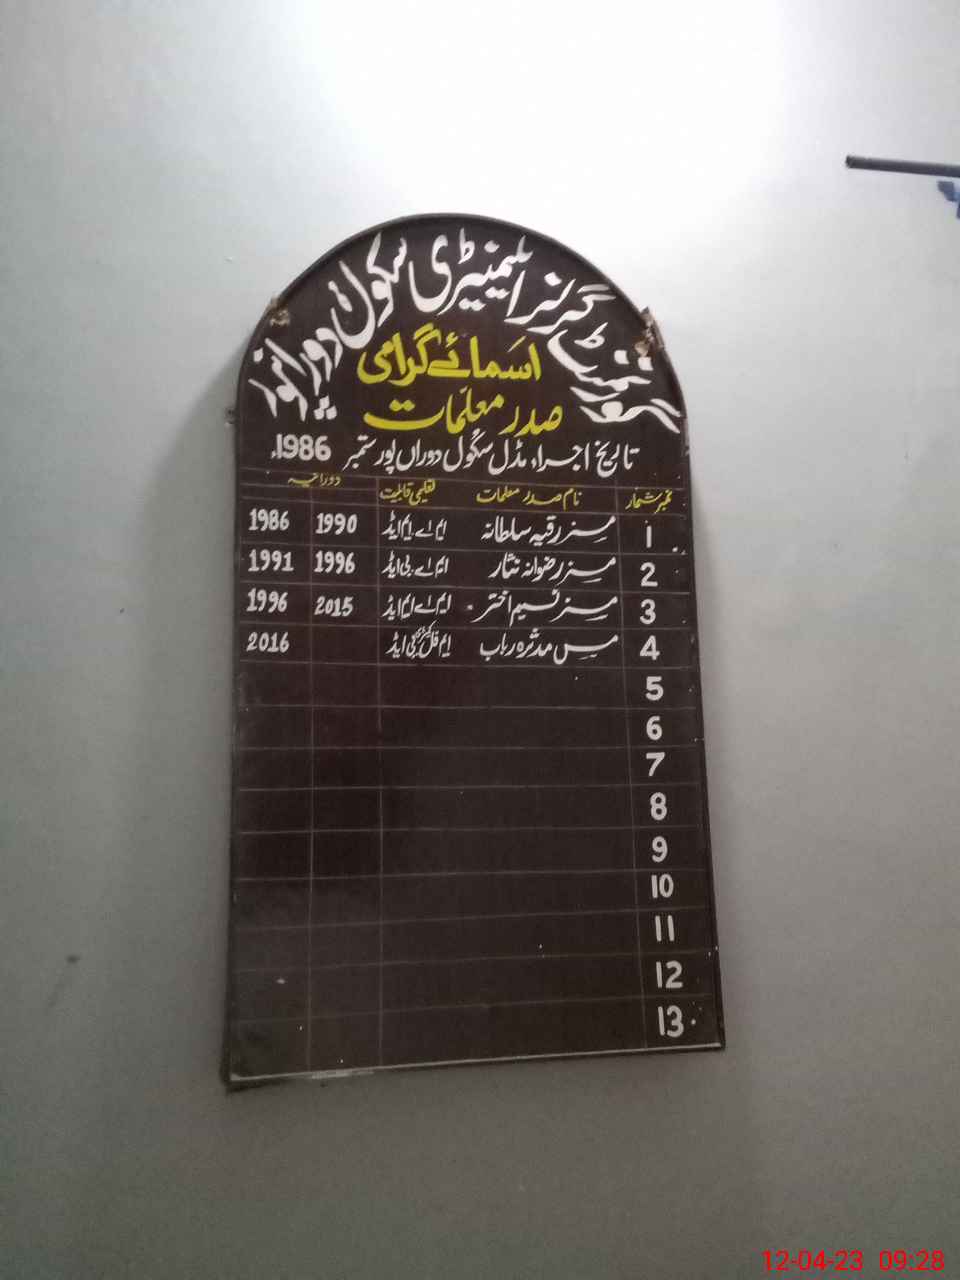 گورنمنٹ گرلز ایلیمنیٹری سکول دوراںپور
اسمائے گرامی
صدر معلمات
تاریخ اجراء مڈل سکول دوراں پور ستمبر 1986ء
نمبر شمار نام صدر معلمات تعلیمی قابلیت دورانیہ
1 مسز رقیہ سلطانہ ایم اے ایم ایڈ 1990 1986
2 مسز رضوانہ نثار ایم اے بی ایڈ 1996 1991
3 مسز نسیم اختر ایم اے ایم ایڈ 2015 1996
4 مس مدثرہ رباب ایم فل بی ایڈ 2016
5
6
7
8
9
10
11
12
13
12-04-23 09:28